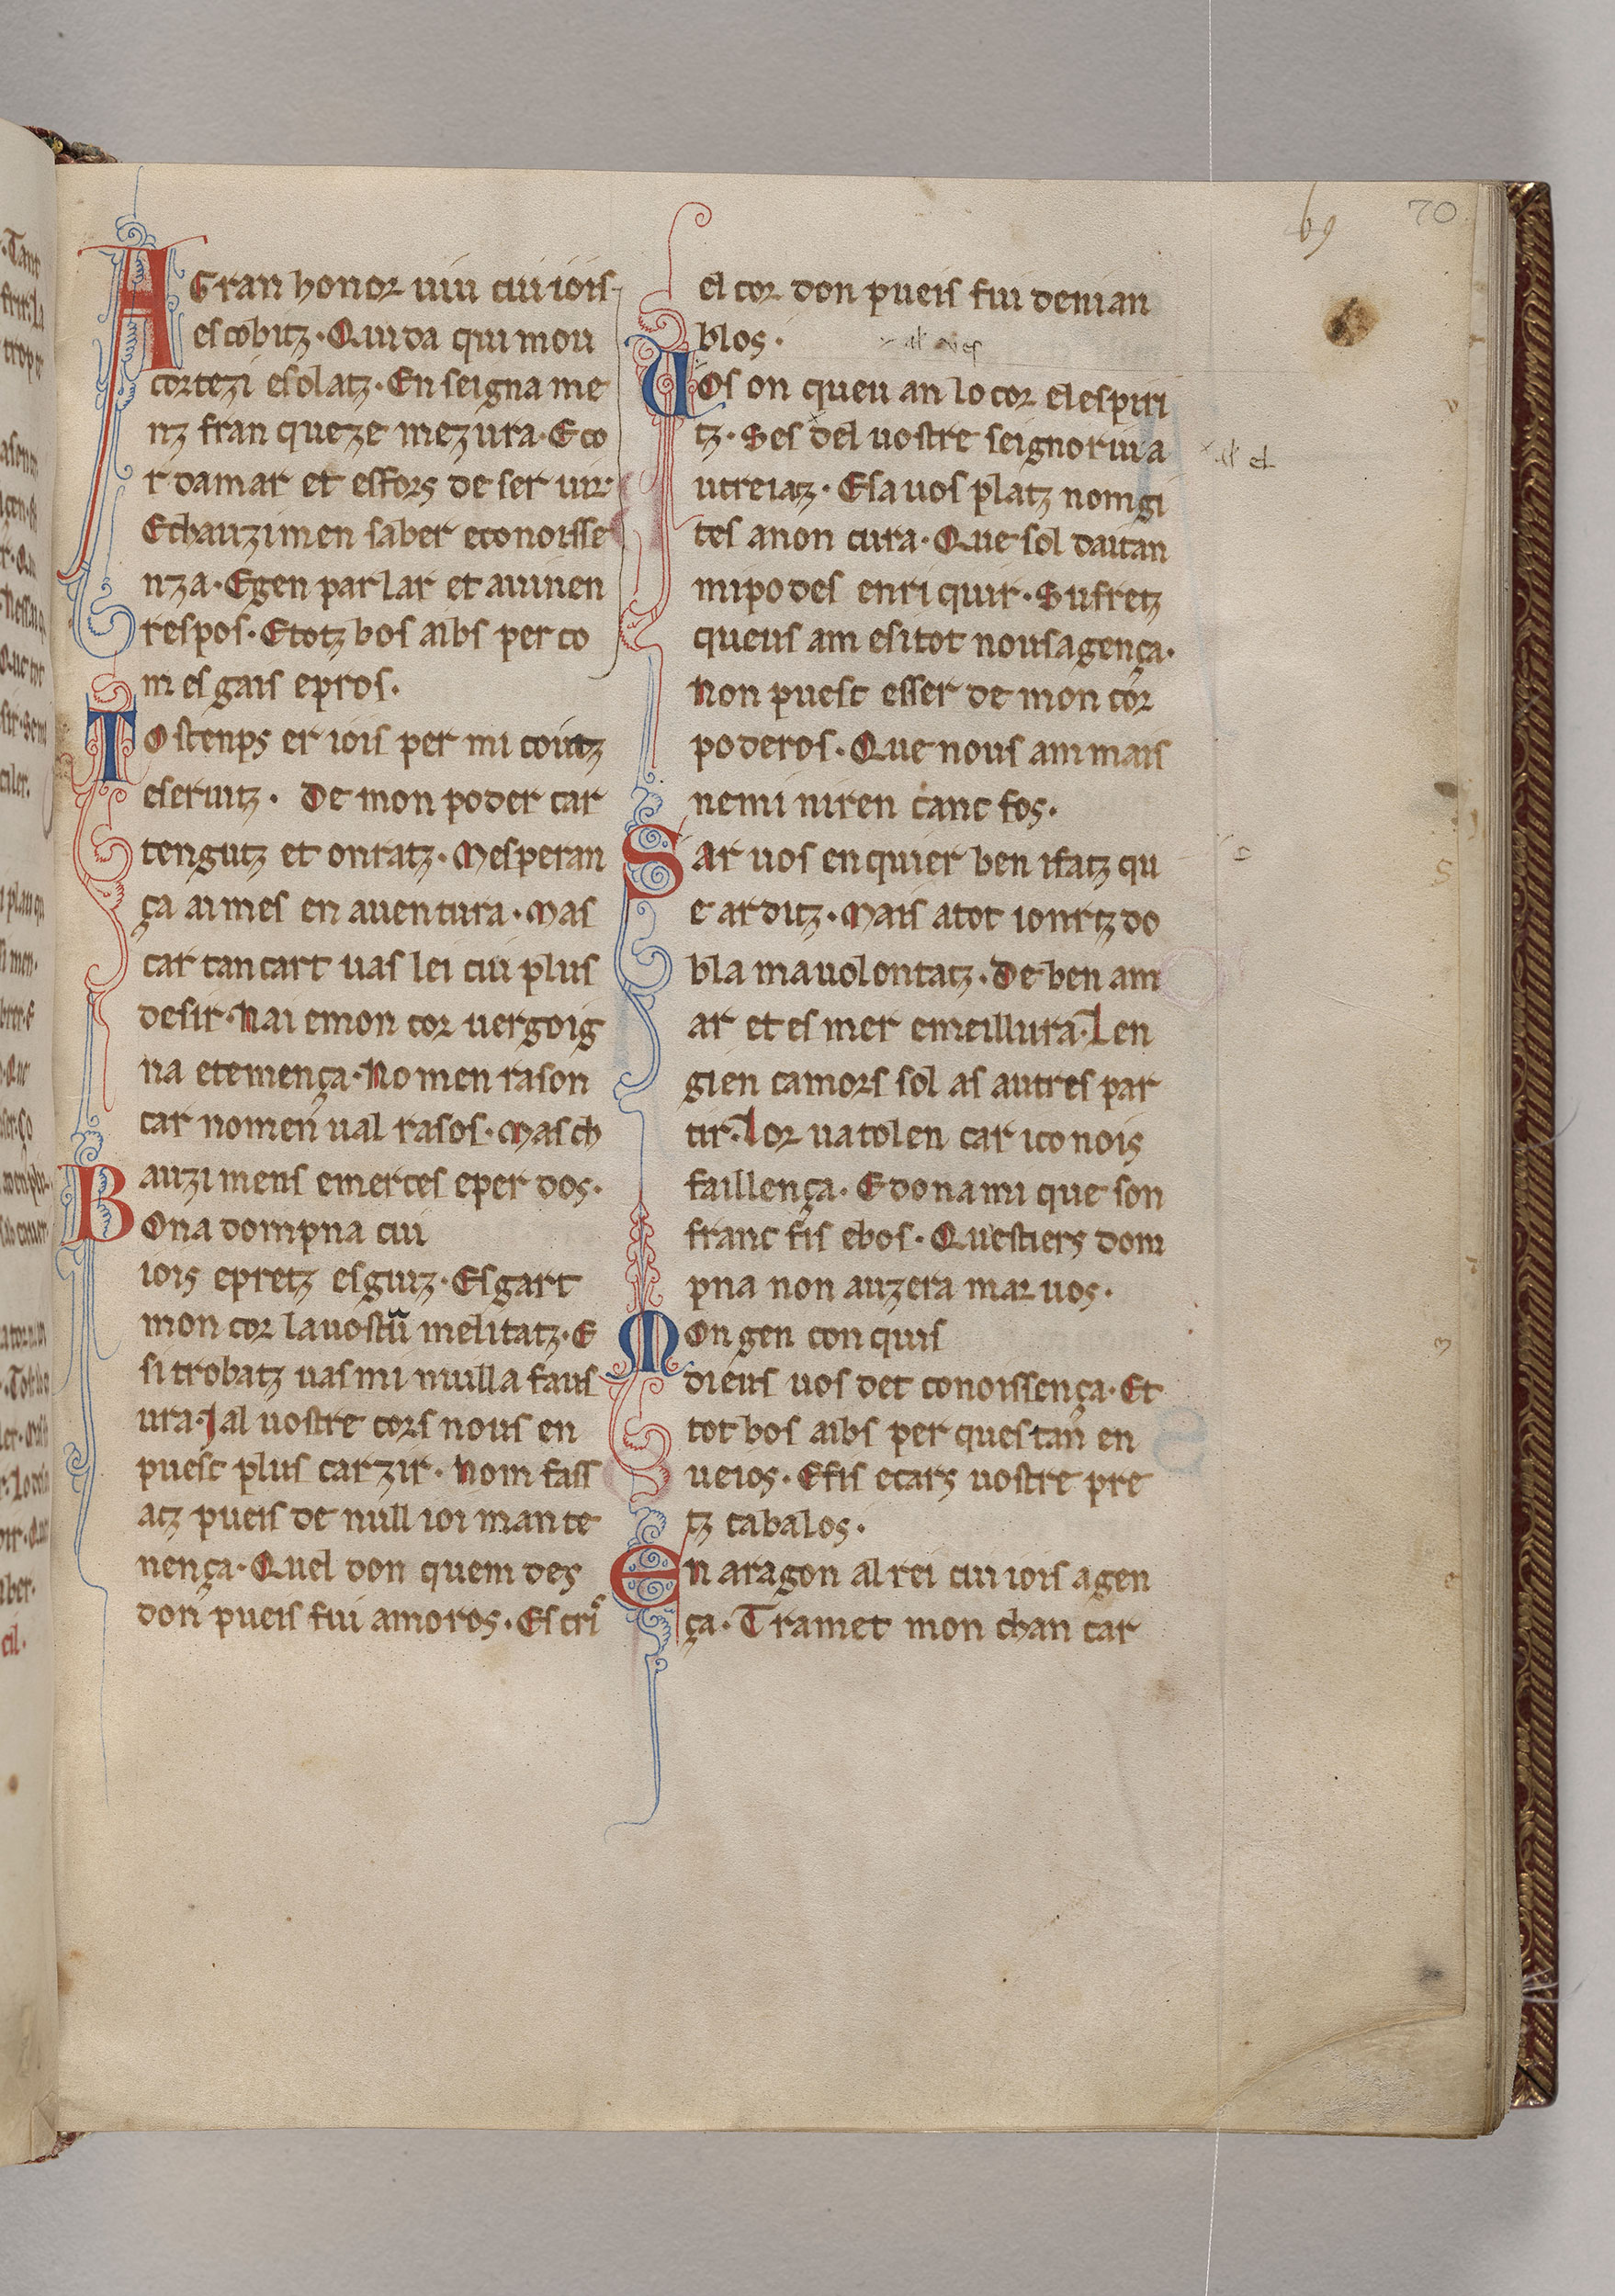 69
70
A Gran honor uiu cui iois
es cobitz. Qui da qui mou
cortezi esolatz. En seigna me
nz fran queze mezura. E co
r damar et esfors de ser uir.
Echauzimen saber econoisse
nza. Egen parlar et auinen
respos. Etotz bos aibs per co
m es gais epros.
Tostenps er iois per mi coitz
eseruitz. De mon poder car
tengutz et onratz. Mesperan
ça ai mes en auentura. Mas
car tan cart uas lei cui plus
desir. Nai emon cor uergoig
na etemença. No men rason
car nomen ual rasos. Mas ch
auzimens emerces eper dos.
Bona dompna cui
iois epretz esguiz. Esgart
mon cor la uostũ melitatz. E
si trobatz uas mi nuilla faits
ura. Ial uostre cors nous en
puesc plus carzir. Nom fass
atz pueis de null ioi mante
nença. Quel don quem des
don pueis fui amoros. Es cris
el cor don pueis fui deman
blos.
Uos on queu an lo cor el espiri
tz. Ses del uostre seignoriu a
al et
utreiatz. Esa uos platz nomgi
tes anon cura. Que sol daitan
mi podes enriquir. Sufretz
queus am esitot nousagença.
Non puesc esser de mon cor
poderos. Que nous am mais
nemi niren canc fos.
Sar uos enquier ben ifatz qu
e arditz. Mais atot iontz do
bla ma uolontatz. De ben am
ar et es mer emeillura. Len
gien camors sol as autres par
tir. Lor ua tolen car i conois
faillença. E dona mi que son
franc fis ebos. Questiers dom
pna non auzera mar uos.
Mon gen conquis
dieus uos det conoissença. Et
tot bos aibs per questan en
ueios. Efis ecars uostre pre
tz cabalos.
En aragon al rei cui iois agen
ça. Tramet mon chan car